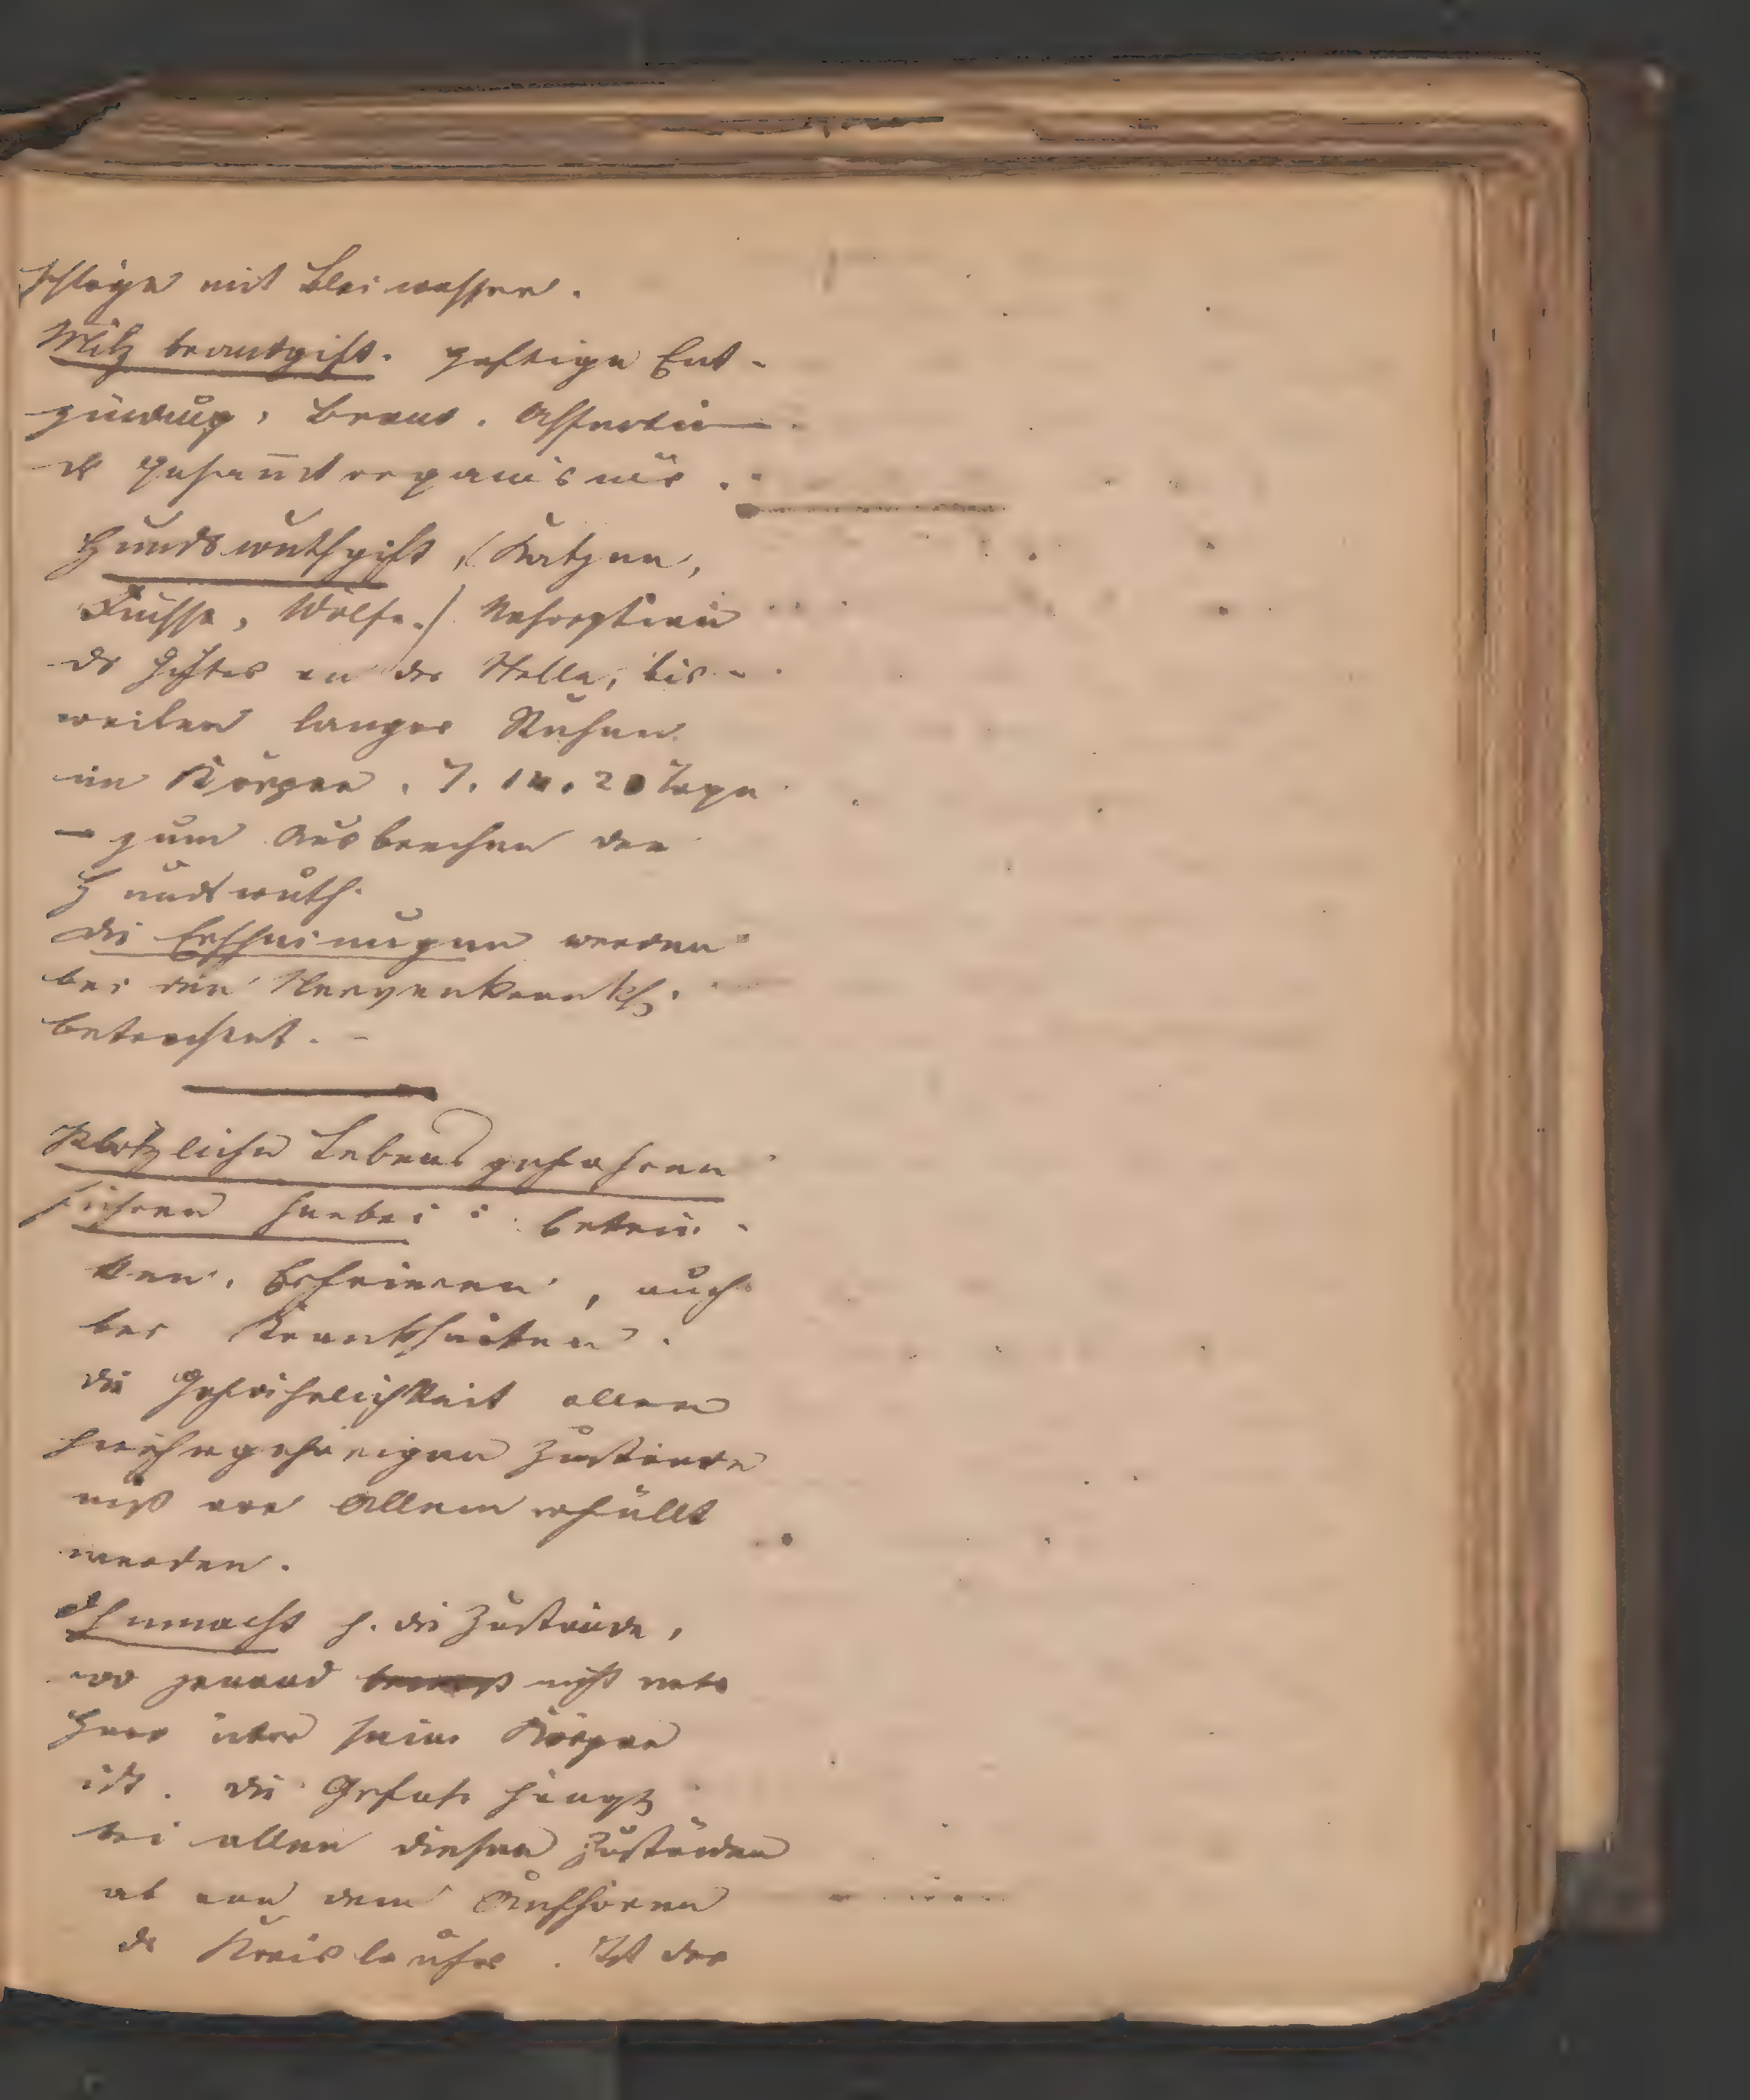 schläge mit Bleiwasser.
Milzbrandgift. heftige Ent-
zündung, Brand. Affection
des Gesam̅torganismus.
Hundswuthgift, (Katzen,
Füchse, Wölfe.) Resorption
des Giftes an der Stelle, bis-
weilen langes Ruhen
im Körper. 7. 14. 20 Tage
– zum Ausbrechen der
Hundswuth.
die Erscheinungen werden
bei den Nervenkrankh.
betrachtet. –
Plötzliche Lebensgefahren
führen herbei: betrin-
ken, Erfrieren, auch
bei Krankheiten.
die Gefährlichkeit aller
hiehergehörigen Zustände
muß vor Allem
werden.
Ohnmacht h. die Zustände,
wo jemand nicht mehr
Herr über seine Körper
ist. die Gefahr hängt
bei allen diesen Zuständen
ab von dem Aufhören
des Kreislaufes. Ist der